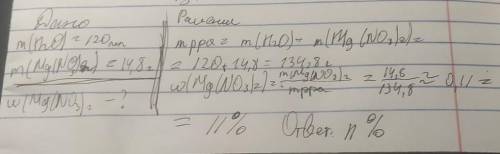 Дано
m(H2O) = 120 мл
m(Mg(NO3)2) = 14,8 г
w(Mg(NO3)2 - ?
Решение
mрра = m(H2O) + m(Mg(NO3)2) =
= 120 + 14,8 = 134,8 г
w(Mg(NO3)2) = m(Mg(NO3)2 / mрра = 14,8 / 134,8 ≈ 0,11 =
= 11% Ответ: 11%